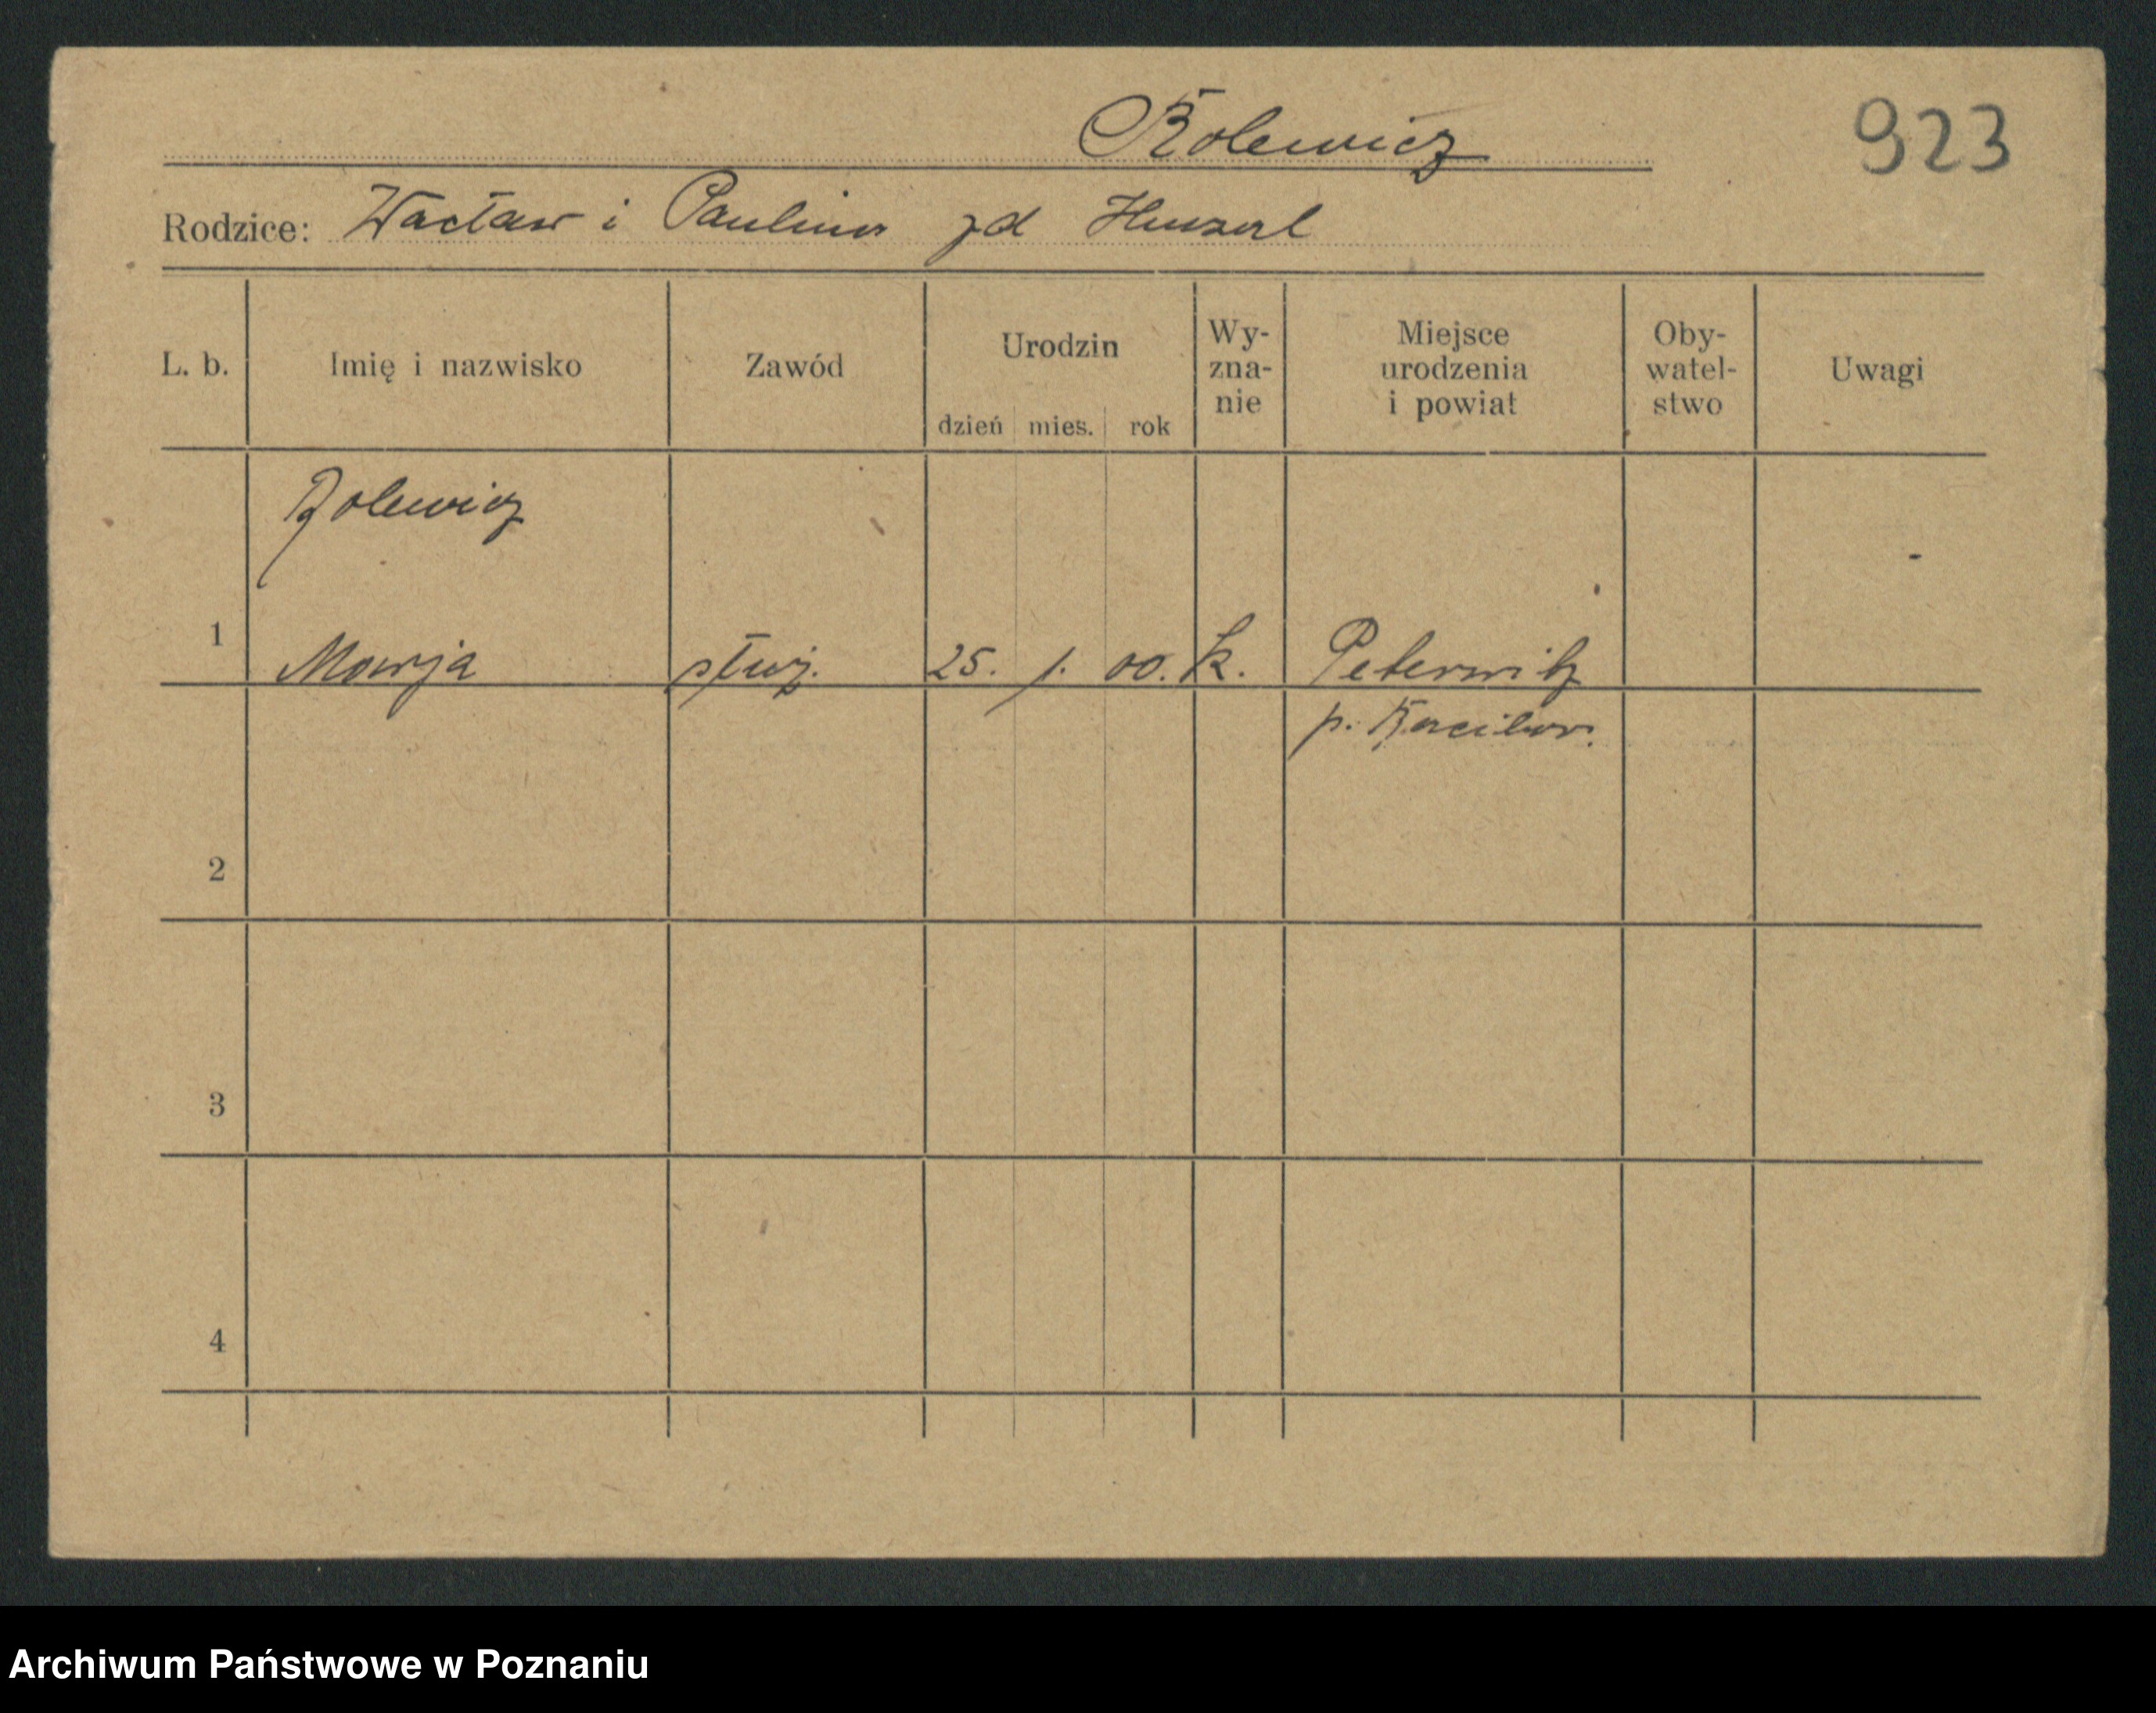 Rolewicz
923
Rodzice: Wacław i Paulina zd
L. b. Imię i nazwisko Zawód Urodzin dzień mies. rok Wy-zna-nie Miejsce urodzenia i powiat Oby-watel-stwo Uwagi
Rolewicz
1 Marja służ. 25. 1. 00. k. Peterwitz
p. Racibor.
2
3
4
Archiwum Państwowe w Poznaniu